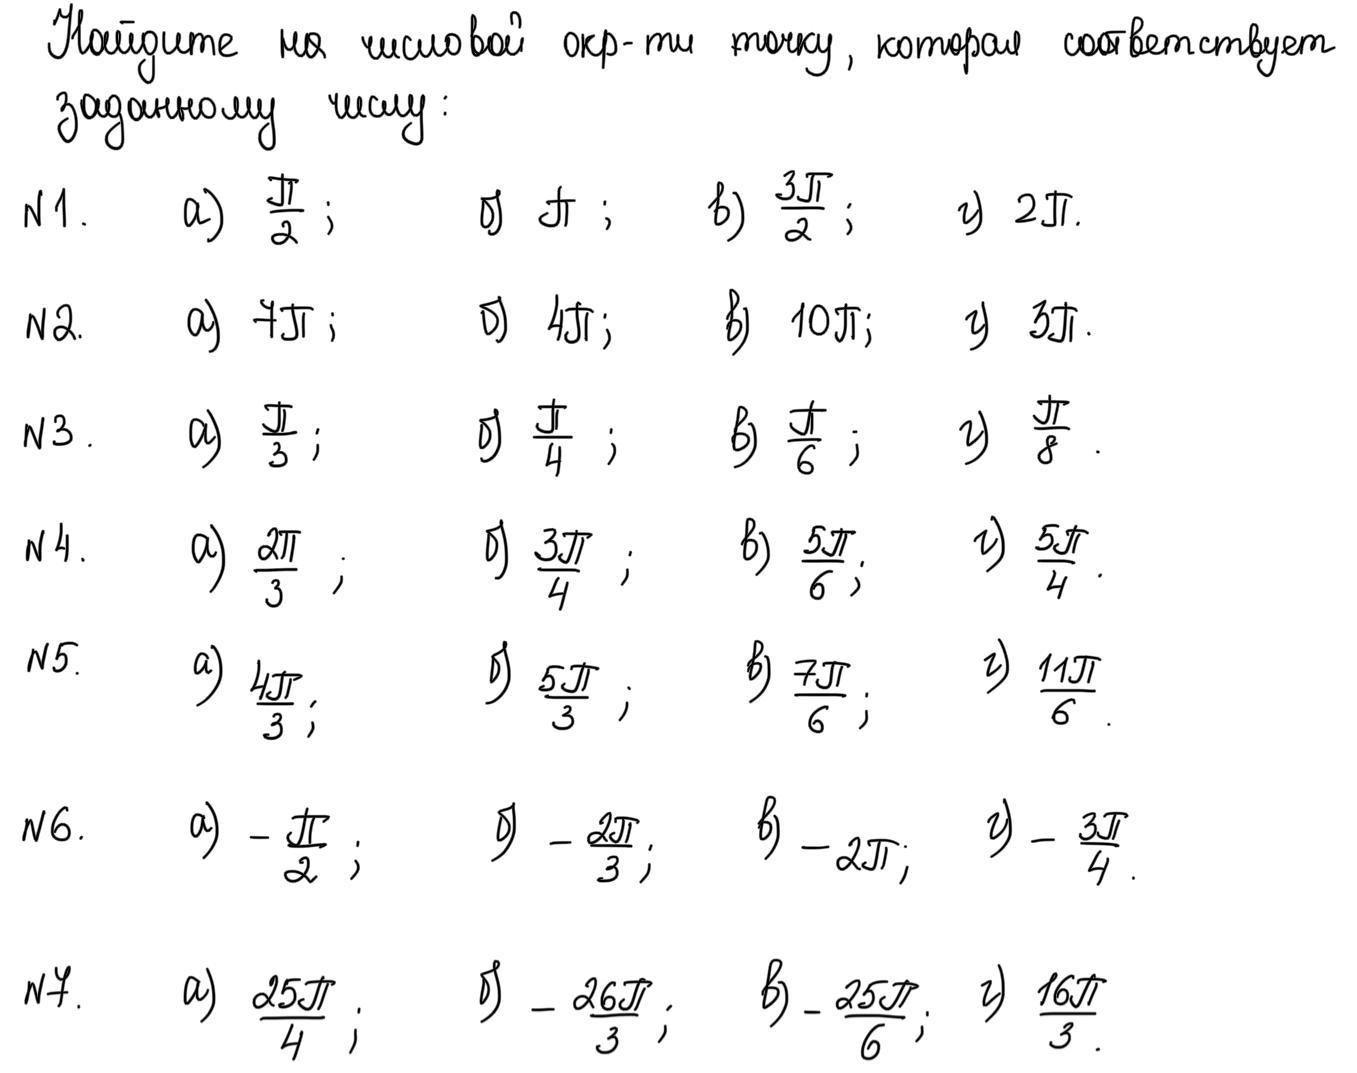 Найдите на числовой окр-ти точку, которая соответствует
заданному числу:
N1. а) π/2; б) π; в) 3π/2; г) 2π.
N2. а) 7π; б) 4π; в) 10π; г) 3π.
N3. а) π/3; б) π/4; в) π/6; г) π/8.
N4. а) 2π/3; б) 3π/4; в) 5π/6; г) 5π/4.
N5. а) 4π/3; б) 5π/3; в) 7π/6; г) 11π/6.
N6. а) -π/2; б) -2π/3; в) -2π; г) -3π/4.
N7. а) 25π/4; б) -26π/3; в) -25π/6; г) 16π/3.